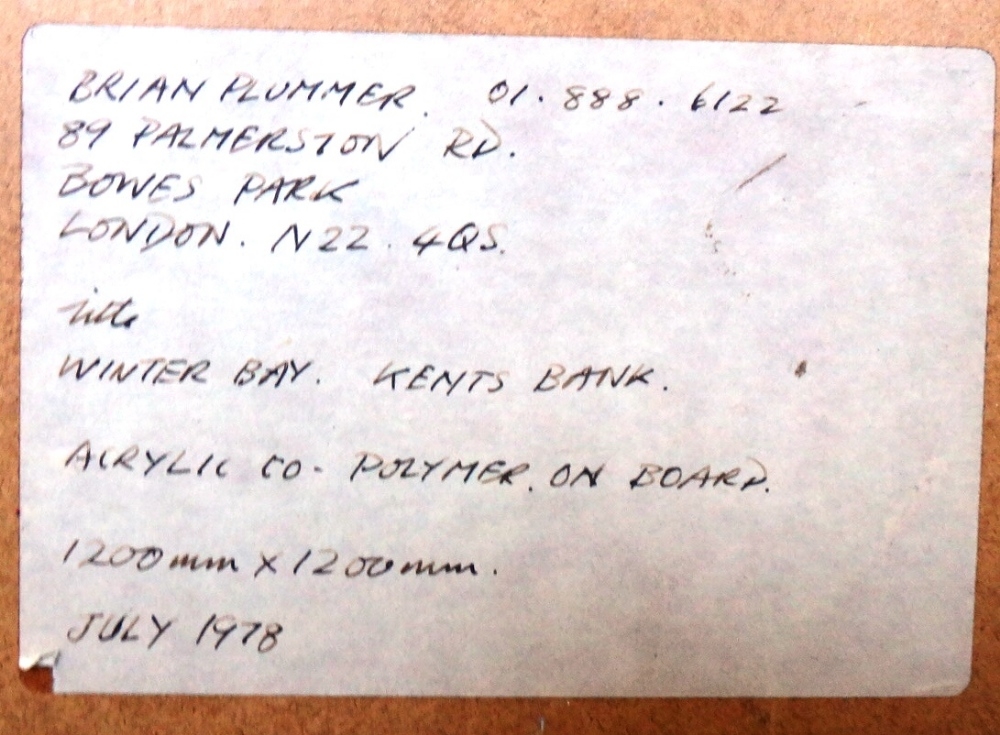 BRIAN PLUMMER. 01.888.6122
89 PALMERSTON RD.
BOWES PARK
LONDON. N22. 4QS.
title
WINTER BAY. KENTS BANK.
ACRYLIC CO-POLYMER. ON BOARD.
1200mm x 1200mm.
JULY 1978